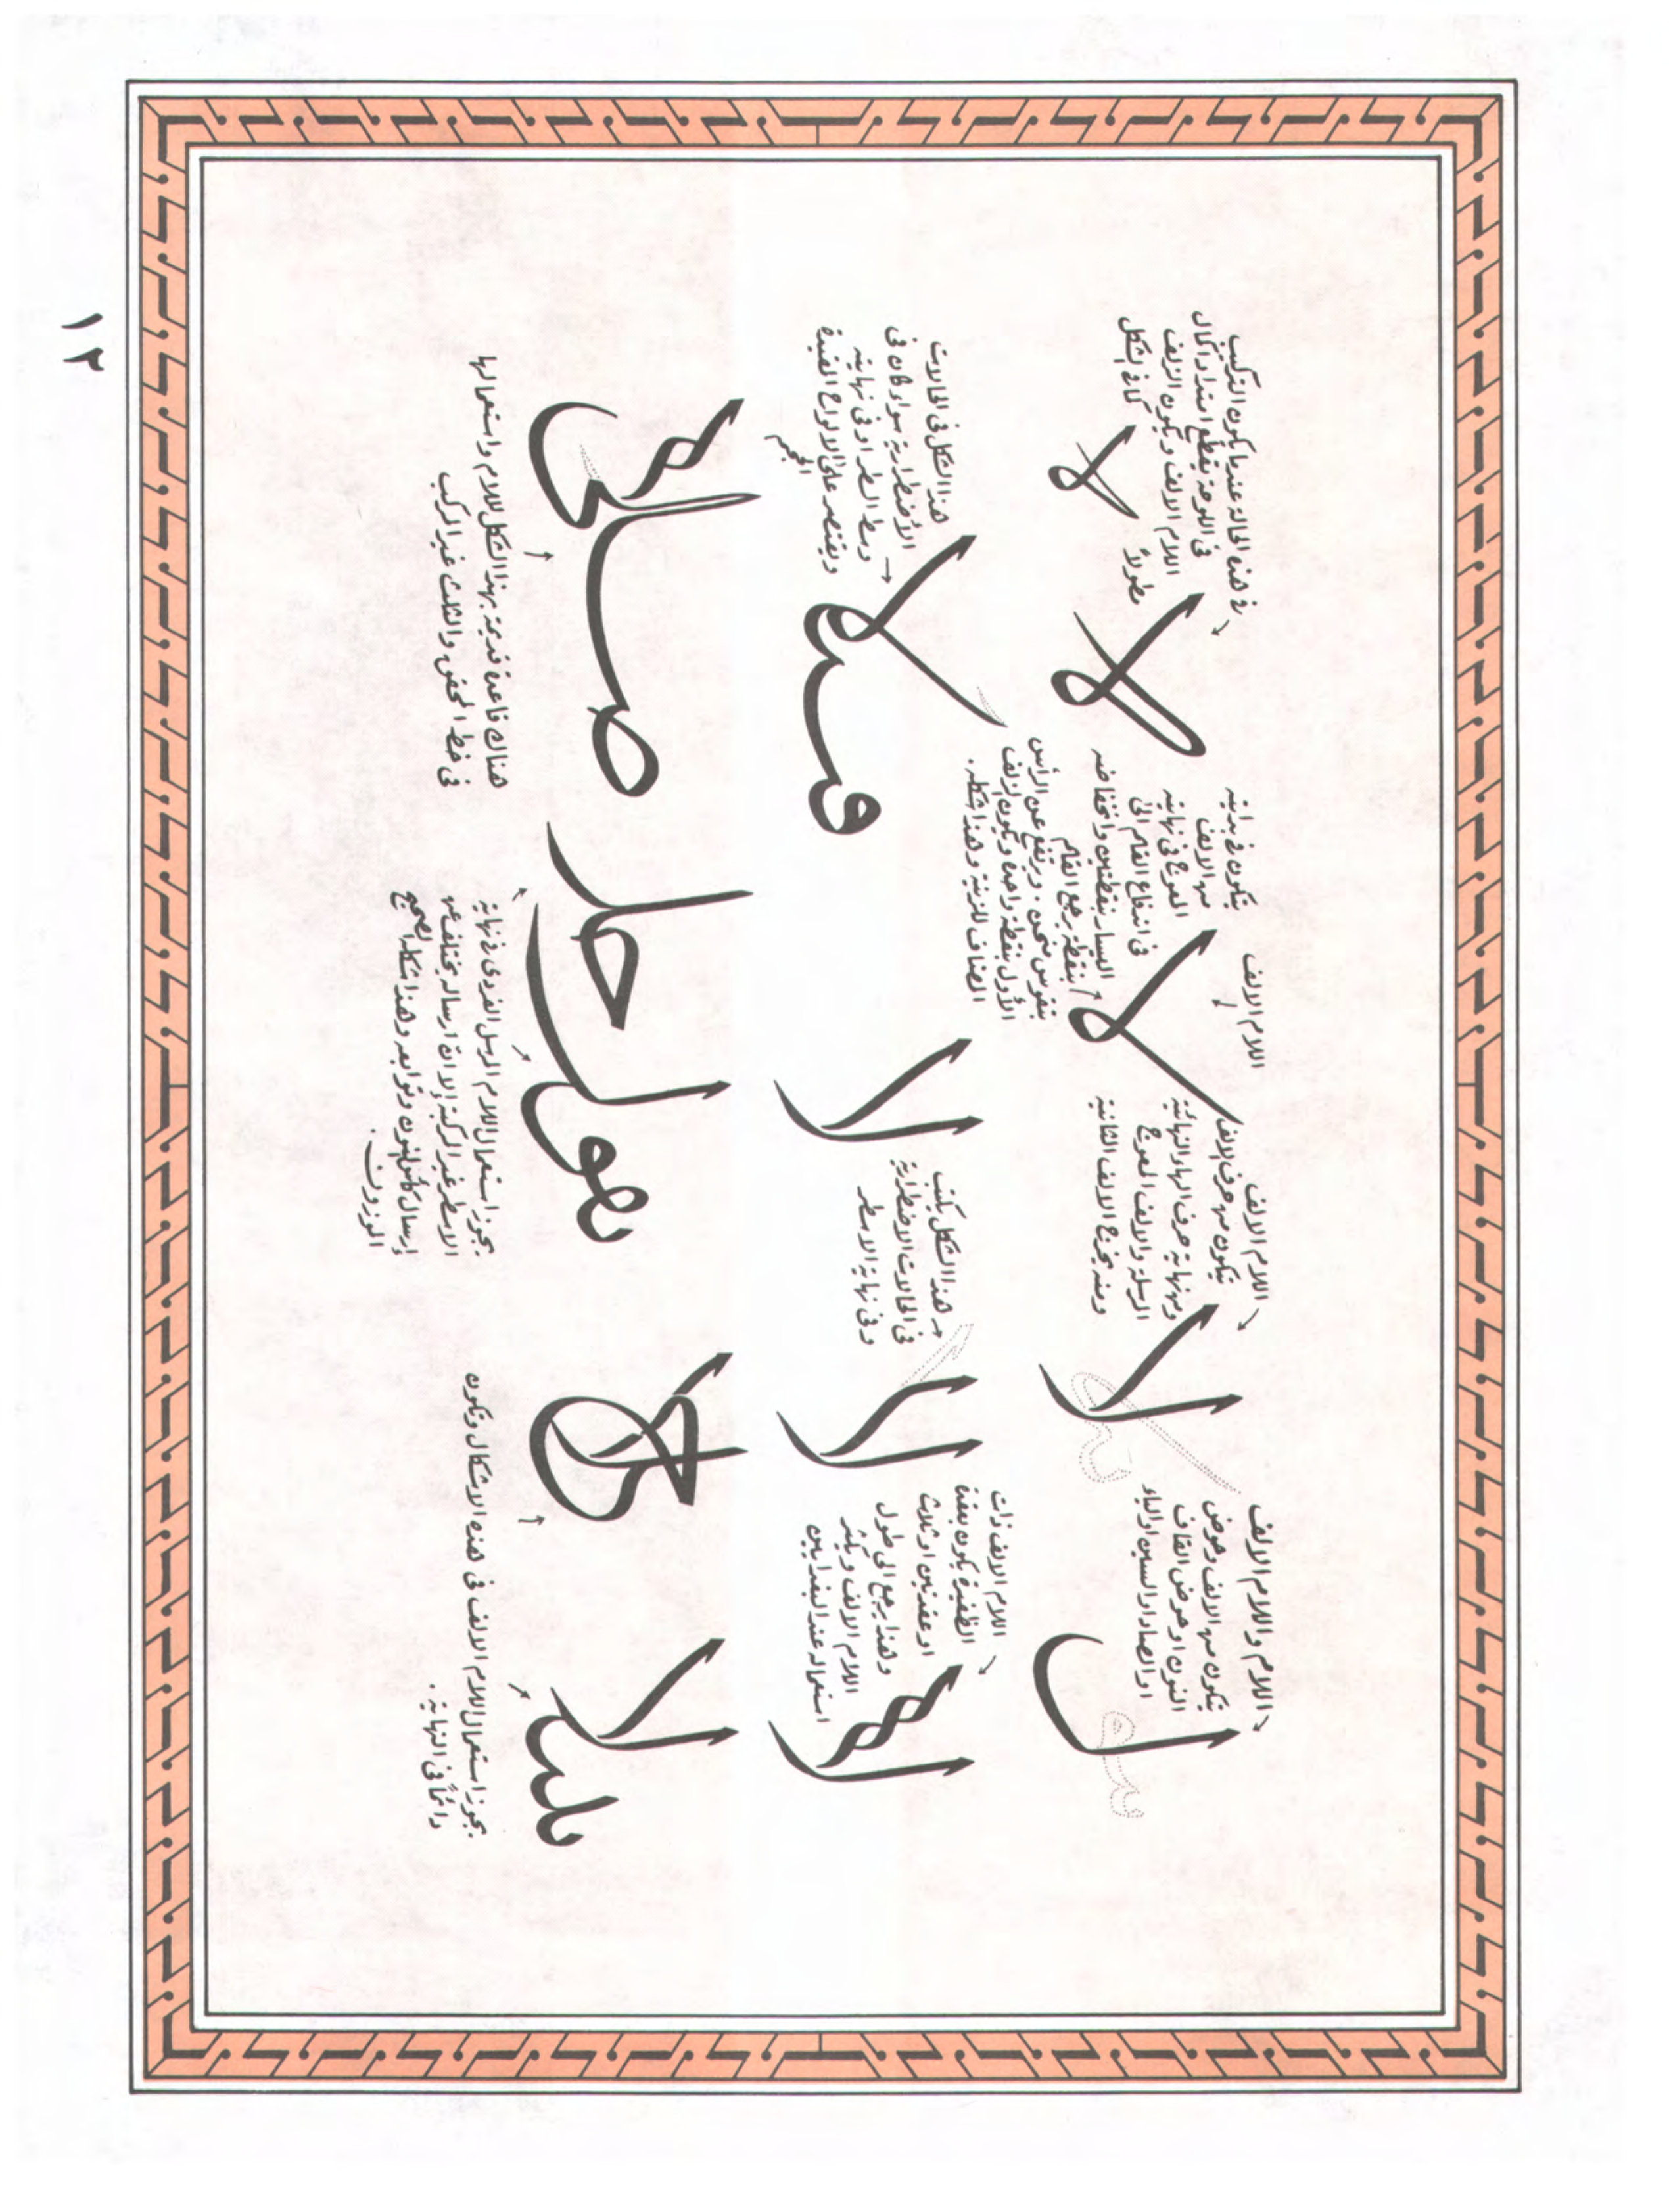 اللام واللام الالف
يتكون من الالف وحوض
النون او حوض القاف
او الصاد او السين او الياء
ل
اللام الالف
تتكون من حرف الالف
ومن نهاية حرف الهاء النهائية
المرسلة والالف المعوج
ومنه يخرج الالف الثانية
لا
اللام الالف
يتكون في بدايته
من الالف
المعوج في نهايته
في اندفاع القلم الى
اليسار بنقطتين وانخفاضه
بنقطة يرجع القلم
بتقوس منحن ويرتفع عن الرأس
الأول بنقطة واحدة ويكون الالف
المضاف للزينة وهذا شكله.
لا
في هذه الحالة عندما يكون التركيب
في اللوحة يقطع امتداد كمال
اللام الالف ويكون الزلف
كما في الشكل
مطولاً
لا
لا
اللام الالف ذات
الظفيرة يكون بعقدة
او عقدتين او ثلاث
وهذا يرجع الى طول
اللام الالف ويكثر
استعماله عند البغداديين
لا
لا
هذا الشكل يكتب
في الحالات الاضطرارية
وفي نهاية الاسطر
لا
هذا الشكل في الحالات
الأضطرارية سواء كان في
وسط السطر او في نهايته
ويقتصر على الالواح الفنية
فملا
يجوز استعمال اللام الالف في هذه الاشكال وتكون
دائماً في النهاية.
يجوز استعمال اللام المرسل الفردي في نهاية
الاسطر غير المركبة إلا ان ارساله يختلف عن
إرسال كأس النون وتوابعه وهذا شكله الصحيح
الموزون.
هناك قاعدة قديمة بهذا الشكل للام واستعمالها
في خط المحقق والثلث غير المركب
١٢